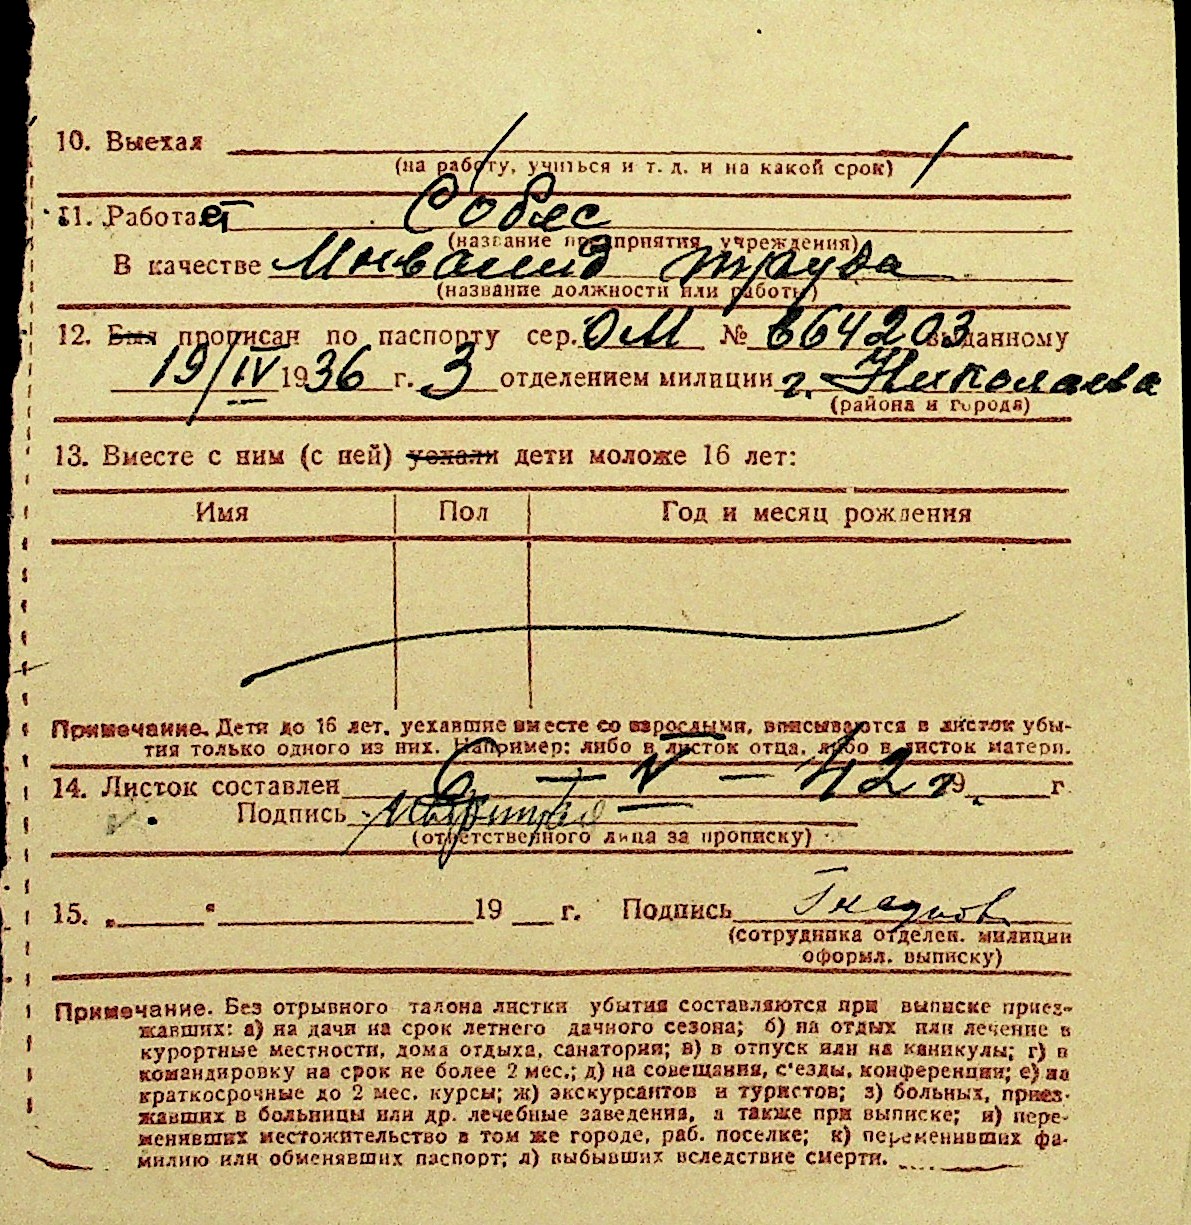 10. Выехал
(на работу, учиться и т. д. и на какой срок)
11. Работает Собес
(название предприятия, учреждения)
В качестве Инвалид труда
(название должности или работы)
12. Был прописан по паспорту сер. ОМ № 664203 выданному
19/IV 1936 г. 3 отделением милиции г. Николаева
(района и города)
13. Вместе с ним (с ней) уехали дети моложе 16 лет:
Имя Пол Год и месяц рождения
Примечание. Дети до 16 лет, уехавшие вместе со взрослыми, вписываются в листок убы-
тия только одного из них. Например: либо в листок отца, либо в листок матери.
14. Листок составлен 6 — V — 42 г. 19 г.
Подпись
(ответственного лица за прописку)
15. „ “ 19 г. Подпись
(сотрудника отделен. милиции
оформл. выписку)
Примечание. Без отрывного талона листки убытия составляются при выписке приез-
жавших: а) на дачи на срок летнего дачного сезона; б) на отдых или лечение в
курортные местности, дома отдыха, санатории; в) в отпуск или на каникулы; г) в
командировку на срок не более 2 мес.; д) на совещания, с'езды, конференции; е) на
краткосрочные до 2 мес. курсы; ж) экскурсантов и туристов; з) больных, приез-
жавших в больницы или др. лечебные заведения, а также при выписке; и) пере-
менивших местожительство в том же городе, раб. поселке; к) переменивших фа-
милию или обменявших паспорт; л) выбывших вследствие смерти.